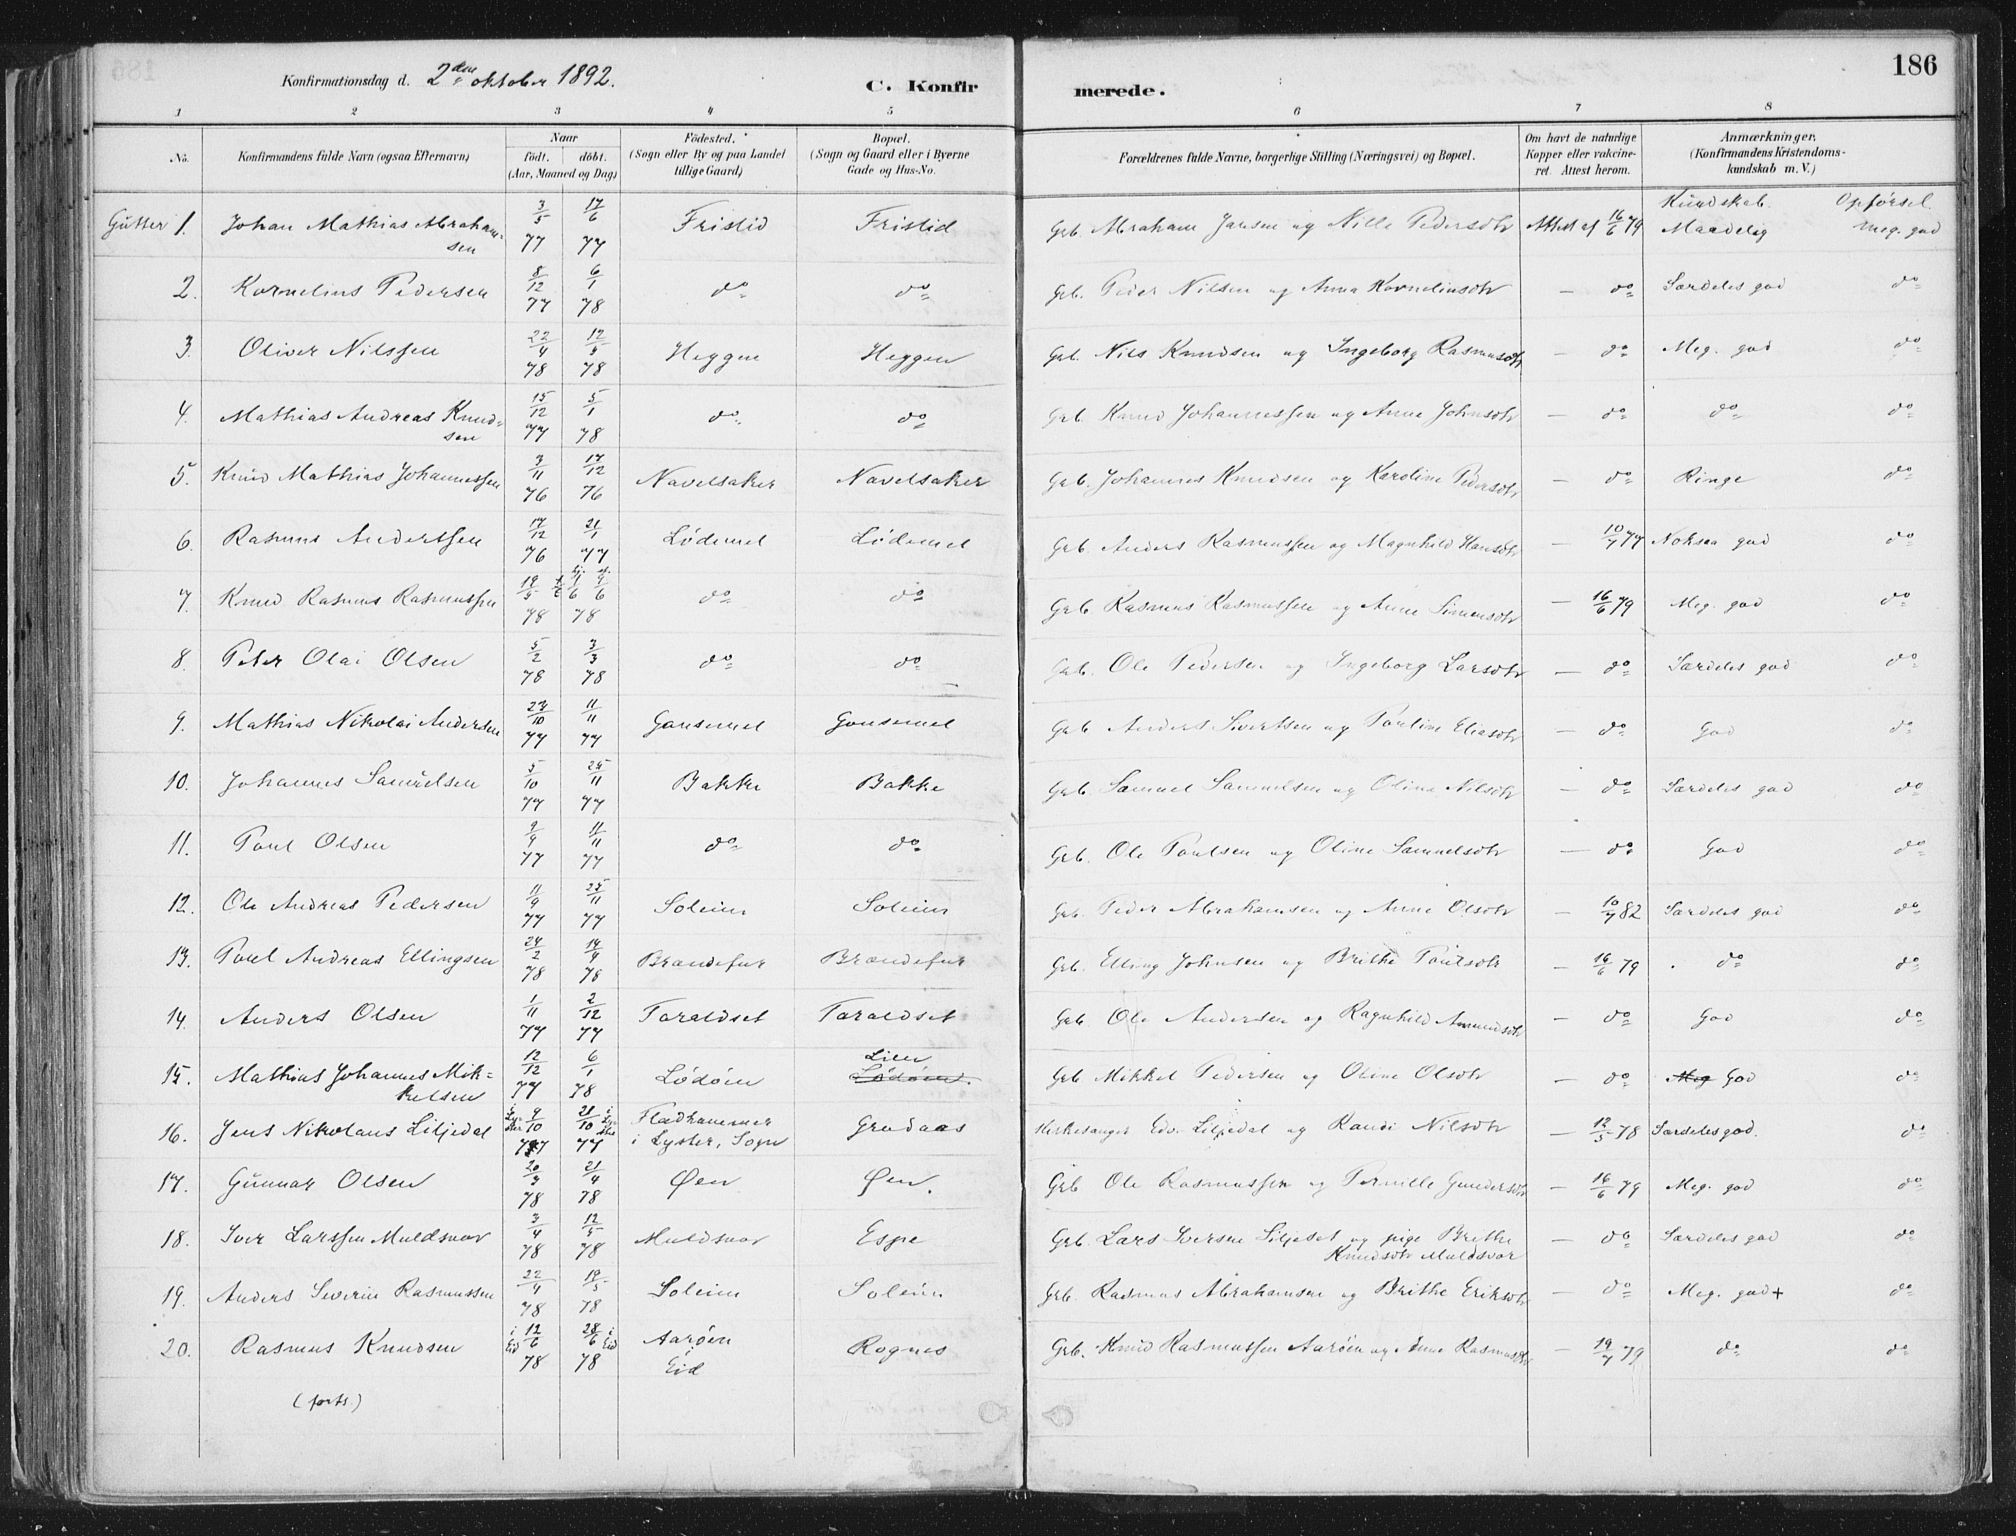 186
Konfirmationsdag d. 2den oktober 1892.
C. Konfirmerede.
1 2 3 4 5 6 7 8
No.
Konfirmandens fulde Navn (ogsaa Efternavn)
Naar
födt. döbt.
(Aar, Maaned og Dag)
Födested.
(Sogn eller By og paa Landet tillige Gaard)
Bopæl.
(Sogn og Gaard eller i Byerne Gade og Hus-No.
Forældrenes fulde Navne, borgerlige Stilling (Næringsvei) og Bopæl.
Om havt de naturlige Kopper eller vakcineret. Attest herom.
Anmærkninger.
(Konfirmandens Kristendomskundskab m. V.)
Kundskab. Opførsel
Gutter 1. Johan Mathias Abrahamsen 3/5 77 17/6 77 Fristid Fristid Grb. Abraham Jansen og Nille Pedersdtr Attest af 16/6 79 Maadelig Meg. god
2. Kornelius Pedersen 8/12 77 6/1 78 do do Grb. Peder Nilsen og Anna Kornelinsdtr — do Særdeles god do
3. Oliver Nilssen 22/4 78 12/5 78 Heggen Heggen Grb. Nils Knudsen og Ingeborg Rasmusdtr — do Meg. god do
4. Mathias Andreas Knudsen 15/12 77 5/1 78 do do Grb. Knud Johannessen og Anne Johnsdtr — do do do
5. Knud Mathias Johannessen 3/11 76 17/12 76 Navelsaker Navelsaker Grb. Johannes Knudsen og Karoline Pedersdtr — do Ringe do
6. Rasmus Anderssen 17/12 76 21/1 77 Lödemel Lödemel Grb. Anders Rasmussen og Magnhild Hansdtr — 10/7 77 Noksaa god do
7. Knud Rasmus Rasmussen 19/5 78 78 do do Grb Rasmus Rasmussen og Anne Simensdtr — 16/6 79 Meg. god do
8. Peter Olai Olsen 5/2 78 3/3 78 do do Grb. Ole Pedersen og Ingeborg Larsdtr — do Særdeles god do
9. Mathias Nikolai Andersen 27/10 77 11/11 77 Gausemel Gausemel Grb. Anders Sivertsen og Pauline Eliasdtr — do God do
10. Johannes Samuelsen 5/10 77 25/11 77 Bakke Bakke Grb. Samuel Samuelsen og Oline Nilsdtr — do Særdeles god do
11. Poul Olsen 9/9 77 11/11 77 do do Grb. Ole Poulsen og Oline Samuelsdtr — do God do
12. Ole Andreas Pedersen 11/9 77 25/11 77 Soleim Soleim Grb. Peder Abrahamsen og Anne Olsdtr — 10/7 82 Særdeles god do
13. Poul Andreas Ellingsen 24/2 78 14/4 78 Brandefur Brandefur Grb. Elling Johnsen og Brithe Poulsdtr — 16/6 79 do do
14. Anders Olsen 1/11 77 2/12 77 Taraldset Taraldset Grb Ole Andersen og Ragnhild Amundsdtr — do God do
15. Mathias Johannes Mikkelsen 12/12 77 6/1 78 Lödöen Lien Lödöen. Grb Mikkel Pedersen og Oline Olsdtr — do Meg God do
16. Jens Nikolaus Liljedal i Lyster 9/10 77 21/10 i Lyster 77 Fladhammer i Lyster, Sogn Grodaas Kirkesanger Edv. Liljedal og Randi Nilsdtr — 12/5 78 Særdeles god. do
17. Gunnar Olsen 20/3 78 21/4 78 Øen Øen. Grb Ole Rasmussen og Pernille Gundersdtr — 16/6 79 Meg. god do
18. Iver Larssen Muldsvor 3/4 78 12/5 78 Muldsvor Espe Grb. Lars Iversen Liljeset og pige Brithe Knudsdtr Muldsvor — do Særdeles god do
19. Anders Severin Rasmussen 22/4 78 19/5 78 Soleim Soleim Grb. Rasmus Abrahamsen og Brithe Eriksdtr — do Meg. god + do
20. Rasmus Knudsen i Eid 12/6 78 28/6 i Eid 78 Aaröen Eid Rognes Grb. Knud Rasmussen Aaröen og Anne Rasmusdtr — 19/7 79 do do
(forts.)